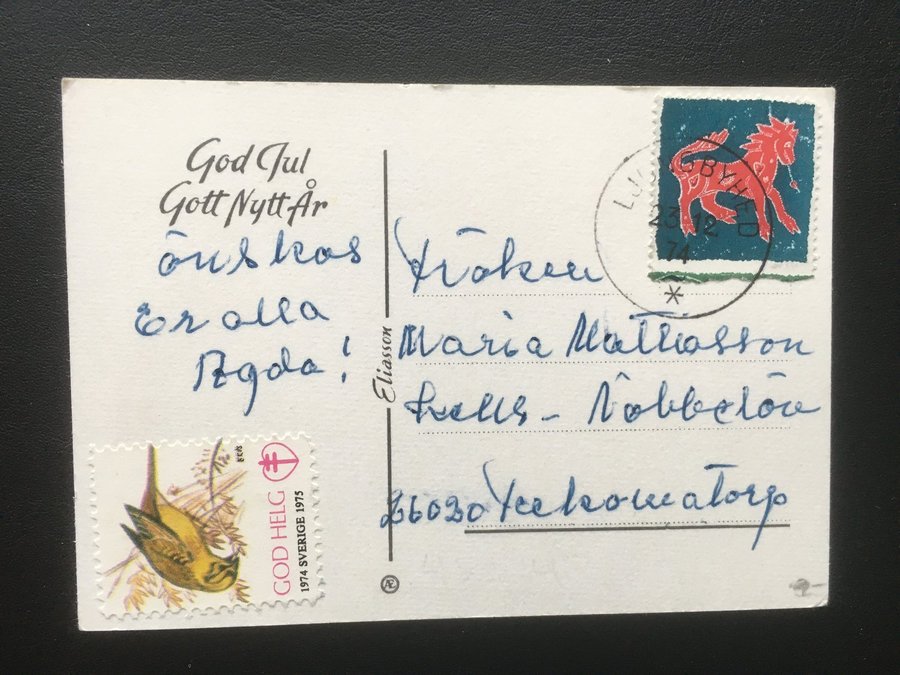 God Jul
Gott Nytt År
önskas
Er alla
Agda!
Eliasson
LJUNGBYHED
23.12
74
*
Fröken
Maria Mattasson
Nöbbelöv
26020 Teckomatorp
GOD HELG
1974 SVERIGE 1975